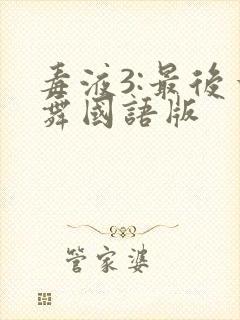 毒液3:最後
舞國語版
管家婆